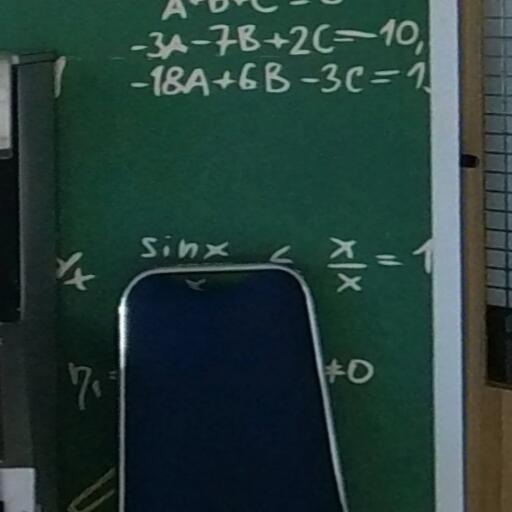 A+B+C=0
-3A-7B+2C=-10,
-18A+6B-3C=1
sinx < x/x = 1
x
η₁= ≠0